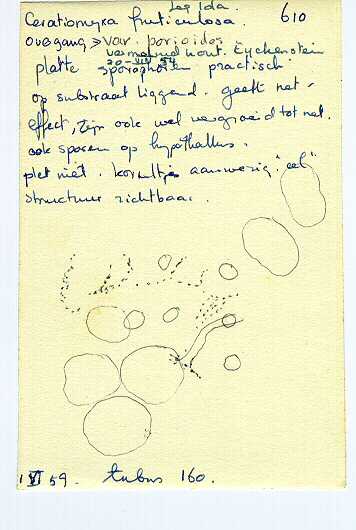 Leg Ida.
Ceratiomyxa fruticulosa. 610
overgang > var. porioides
vermolmd hout. Eyckenstein
20-VIII 54
platte sporophoren practisch
op substraat liggend. geeft net-
effect, zijn ook wel vergroeid tot net.
ook sporen op hypothallus.
plet niet. korreltjes aanwezig "cel"
structuur zichtbaar.
VI 59. tubus 160.